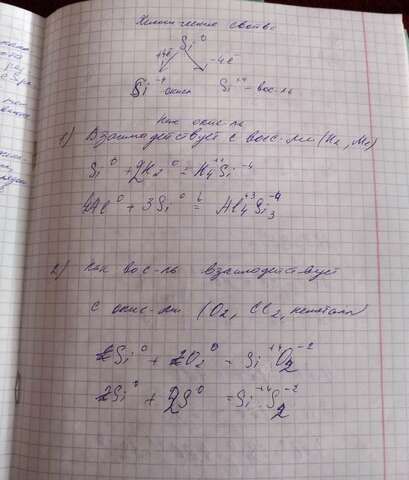 Химические свойства
Si⁰
+4ē -4ē
Si⁻⁴ -окисл Si⁺⁴ - вос-ль
как окис-ль
1) Взаимодействует с вос-ми (H₂, Me)
Si⁰ + 2H₂⁰ = H₄⁺¹Si⁻⁴
4Al⁰ + 3Si⁰ =ᵗ Al₄⁺³Si₃⁻⁴
2) Как вос-ль взаимодействует
с окис-ми (O₂, Cl₂, неметалл
Si⁰ + O₂⁰ = Si⁺⁴O₂⁻²
Si⁰ + 2S⁰ = Si⁺⁴S₂⁻²